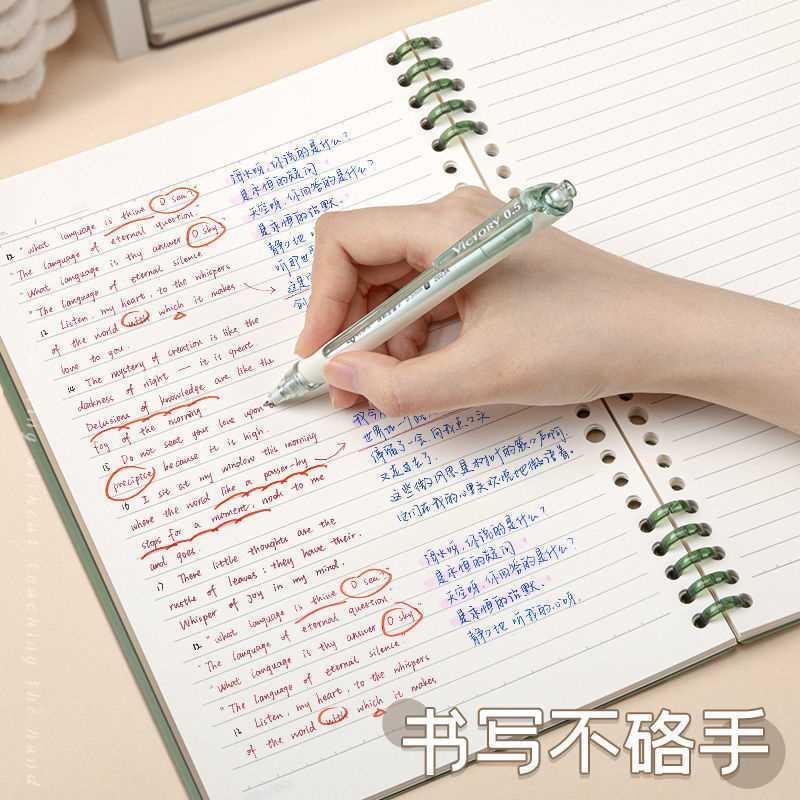 12 "what language is thine O sea?"
"The language of eternal question."
"What language is thy answer O sky"
"The Language of eternal silence
12 Listen, my heart, to the whispers
of the world with which it makes
love to you.
14 The mystery of creation is like the
darkness of night — it is great.
Delusions of knowledge are like the
fog of the morning
15 Do not seat your love upon
precipice because it is high.
16 I sit at my window this morning
where the world like a passer-by
stops for a moment, nods to me
and goes.
17 There little thoughts are the
rustle of leaves; they have their.
Whisper of joy in my mind.
12 "what language is thine O sea?"
"The language of eternal question.
"What language is thy answer O sky"
"The Language of eternal silence
12 Listen, my heart, to the whispers
of the world with which it makes
海水呀,你说的是什么?
是永恒的疑问
天空呀,你回答的是什么?
是永恒的沉默.
静々地
听那世
这是
创
世界如一个
停留了一会,向我点々头
又走过去了.
这些微风思是树叶的簌々声响.
它们在我的心里欢悦地微语着.
海水呀,你说的是什么?
是永恒的疑问
天空呀,你回答的是什么?
是永恒的沉默.
静々地 听我的心呀.
VICTORY 0.5
书写不硌手